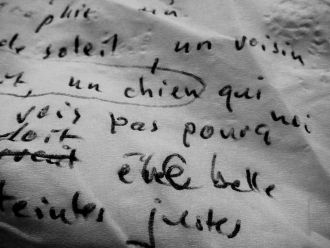 de soleil un voisin
un chien qui
vois pas pourquoi
doit
être belle
teintes justes